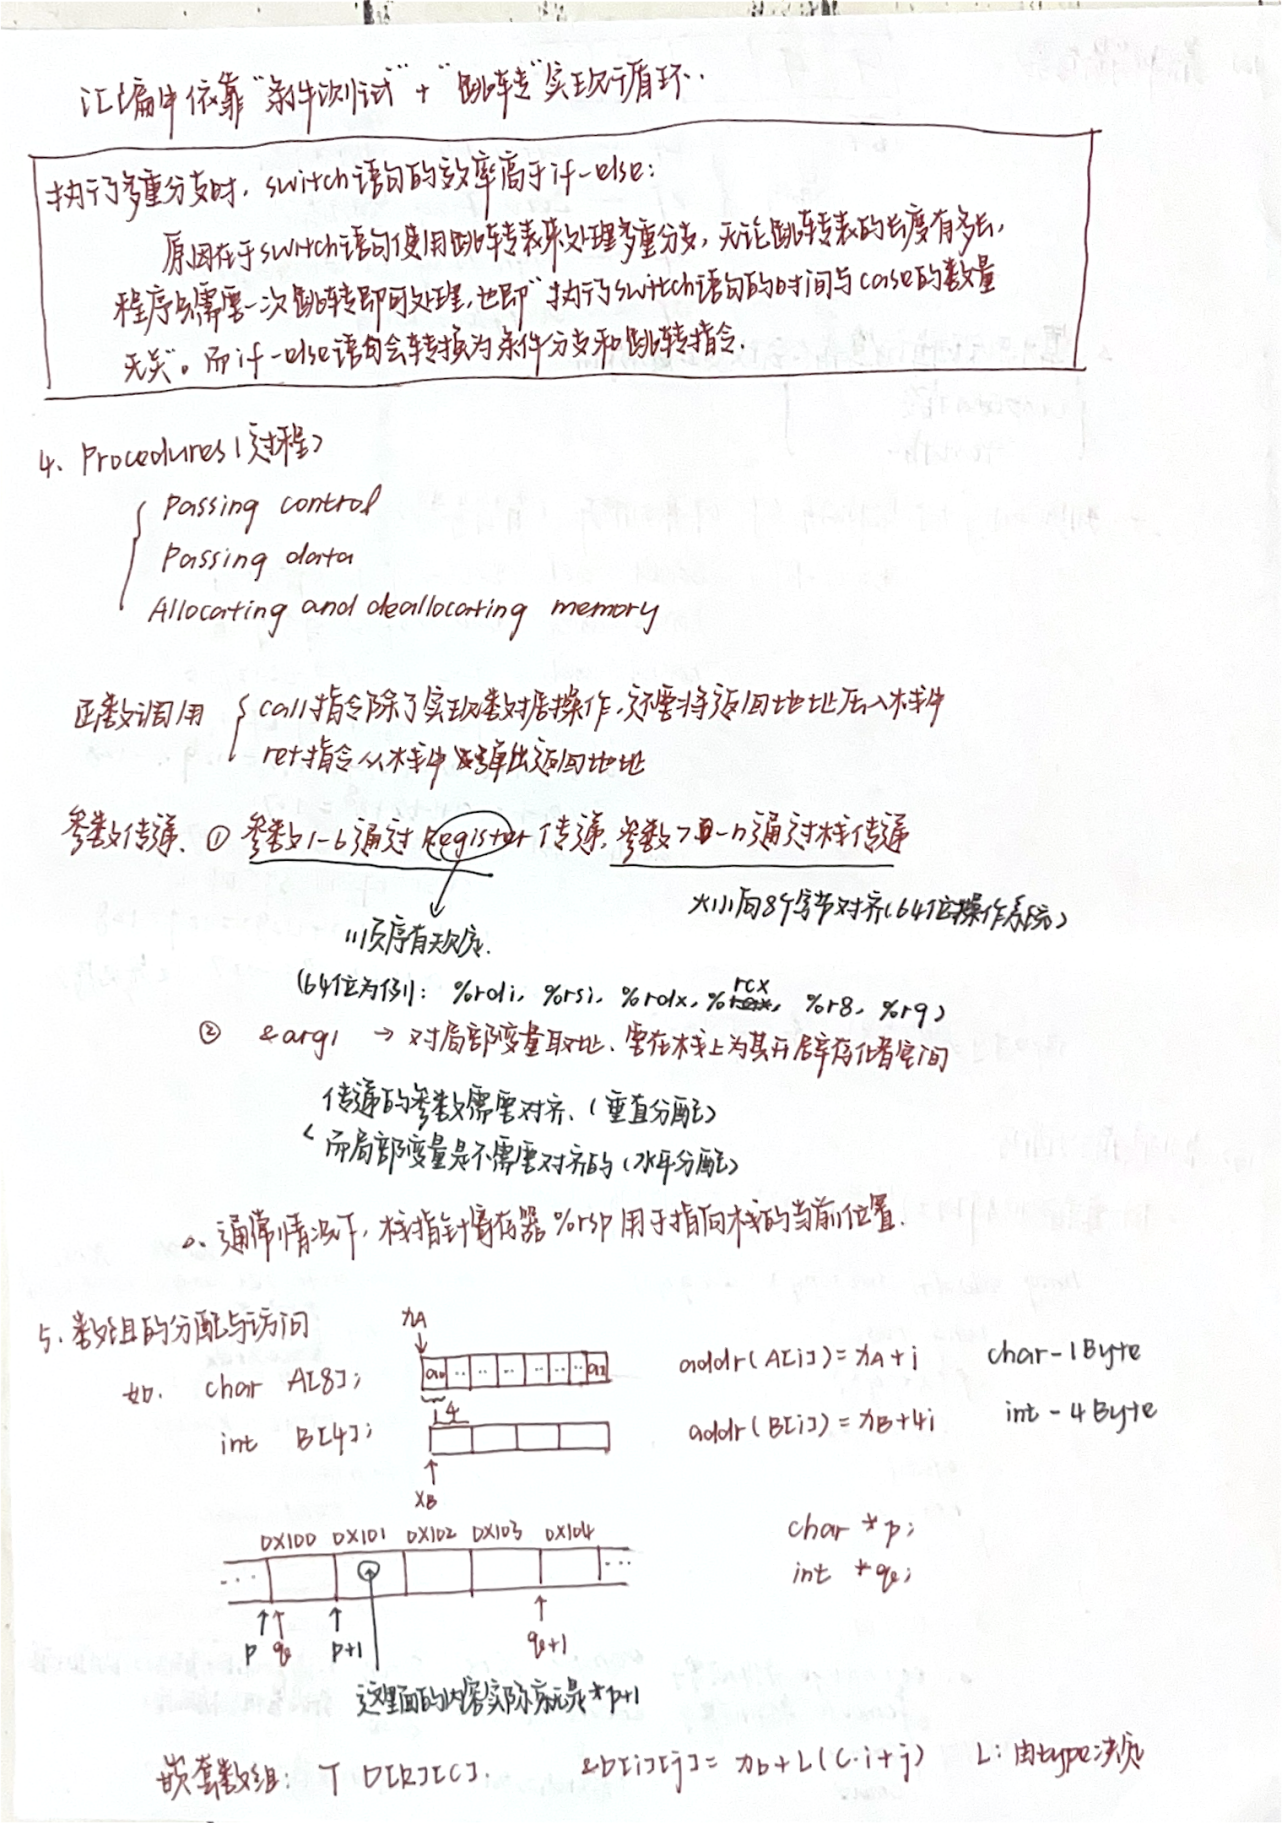 汇编中依靠"条件测试"+"跳转"实现循环..
执行多重分支时，switch语句的效率高于if-else：
原因在于switch语句使用跳转表来处理多重分支，无论跳转表的长度有多长，
程序只需要一次跳转即可处理，也即"执行switch语句的时间与case的数量
无关"。而if-else语句会转换为条件分支和跳转指令.
4、Procedures(过程)
Passing control
Passing data
Allocating and deallocating memory
函数调用
call指令除了实现数据操作，还要将返回地址压入栈中
ret指令从栈中弹出返回地址
参数传递、① 参数1-6通过Register传递，参数7-n通过栈传递
大小向8个字节对齐(64位操作系统)
顺序有规定.
(64位为例：%rdi, %rsi, %rdx, %rcx, %r8, %r9)
② &arg1 → 对局部变量取地址、需在栈上为其开辟存储空间
传递的参数需要对齐、(垂直分配)
而局部变量是不需要对齐的(水平分配)
△、通常情况下，栈指针寄存器%rsp用于指向栈的当前位置.
5. 数组的分配与访问
xA
如. char A[8];
addr(A[i])=xA+i
char-1Byte
4
int B[4];
addr(B[i])=xB+4i
int-4Byte
xB
0X100 0X101 0X102 0X103 0X104
char *p;
int *q;
p q p+1 q+1
这里面的内容实际就是*p+1
嵌套数组：T D[R][C]. &D[i][j]=xD+L(C·i+j) L：由type决定